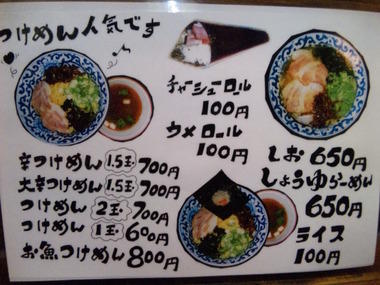 つけめん人気です
チャーシューロール
100円
ウメロール
100円
辛つけめん 1.5玉 700円
大辛つけめん 1.5玉 700円
つけめん 2玉 700円
つけめん 1玉 600円
お魚つけめん 800円
しお 650円
しょうゆらーめん
650円
ライス
100円